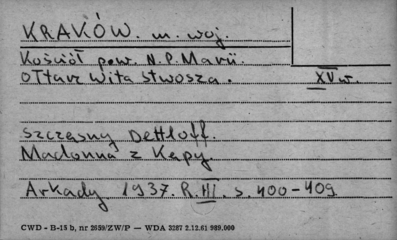 KRAKÓW. m. woj.
Kościół pow. N.P. Marii.
Ołtarz Wita Stwosza.
XV w.
Szczęsny Dettloff.
Madonna z Kępy.
Arkady 1937. R.III. s. 400-409
CWD - B-15 b, nr 2659/ZW/P — WDA 3287 2.12.61 989.000